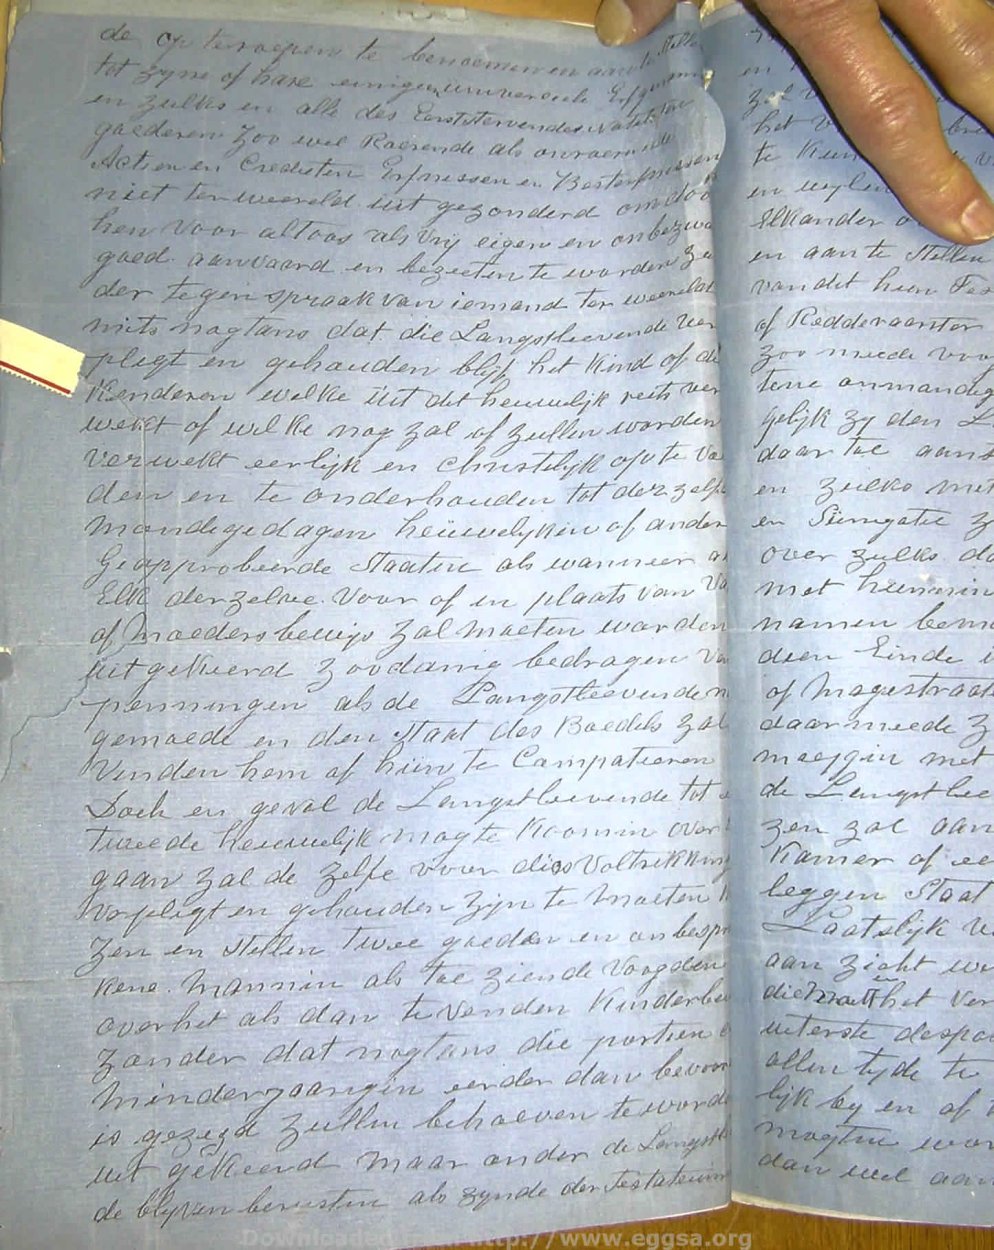 de op te roepen te benoemen en aan te Stelle
tot zyne of hare eenige universeele Erfgenaam
en zulks en alle des Eerststervendes natelatene
goederen Zoo wel Roerende als onroerende
Actien en Credieten Erfnessen en Besterfnessen
niet ter weereld uit gezonderd om door
hen voor altoos als Vrij eigen en onbezwa
goed aanvaard en bezeeten te worden Zo
der tegen spraak van iemand ter weereld
mits nogtans dat die Langstleevende ver
pligt en gehouden blijf het Kind of de
Kenderen welke uit dit heuwelijk reets ver
wekt of welke nog zal of zullen worden
verwekt eerlijk en christelyk op te voe
den en te onderhouden tot derzelfe
mondigedagen heuwelyken of ander
Geapprobeerde Staaten als wanneer a
Elk derzelve voor of in plaats van Va
of moeders bewijs zal moeten worden
uitgekeerd zoodanig bedragen Va
penningen als de Langstleevende n
gemoede en den Staat des Boedels zal
Venden hem of hun te Compateeren
Doch en geval de Langstleevende tot e
Tweede heuwelijk mogte koomen over
gaan zal de zelfe voor dies voltrekking
Verpligt en gehouden zijn te moeten K
Zen en Stellen Twee goeden en onbespro
kene mannen als toe ziende Voogden
over het als dan te venden Kinderbew
zonder dat nogtans die portien
minderjaangen eerder dan bevoor
is gezegd zullen behoeven te worde
uit gekeerd maar onder de Langstl
de blyven berusten als zynde der Testateuren
en
het
te Kun
en wylen
Elkander o
en aan te Stellen
van dit hun Tes
of Redderaanter
zoo meede voog
tene onmondig
gelijk zy den L
daar toe aanst
en zulks met
en Surrogatie z
over zulks da
met hunnen
namen benu
dien Einde
of Magestraat
daar meede Z
moeggen met
de Langstlee
zen zal aan
Kamer of ee
leggen Staat
Laatslijk
aan zicht
die het ver
uiterste despo
allen tyde te
lijk by en of
mogten wor
dan wel aan
Downloaded from http://www.eggsa.org